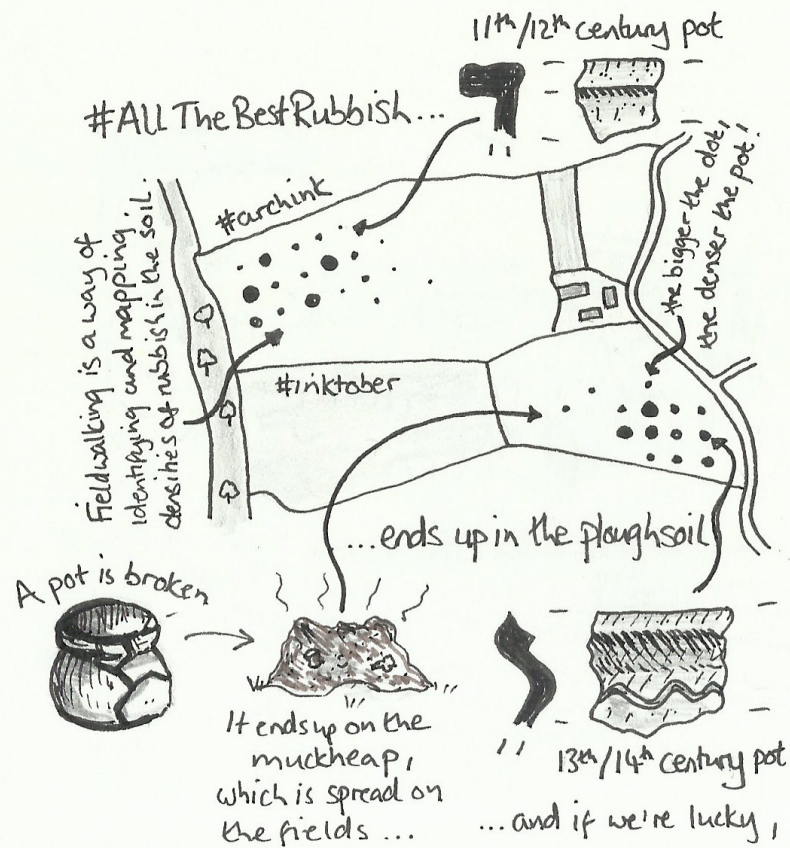 11th/12th century pot
#All The Best Rubbish...
#archink
Fieldwalking is a way of
identifying and mapping,
densities of rubbish in the soil.
the bigger the dot,
the denser the pot!
#inktober
...ends up in the ploughsoil
A pot is broken
It ends up on the
muckheap,
which is spread on
the fields ...
13th/14th century pot
...and if we're lucky,